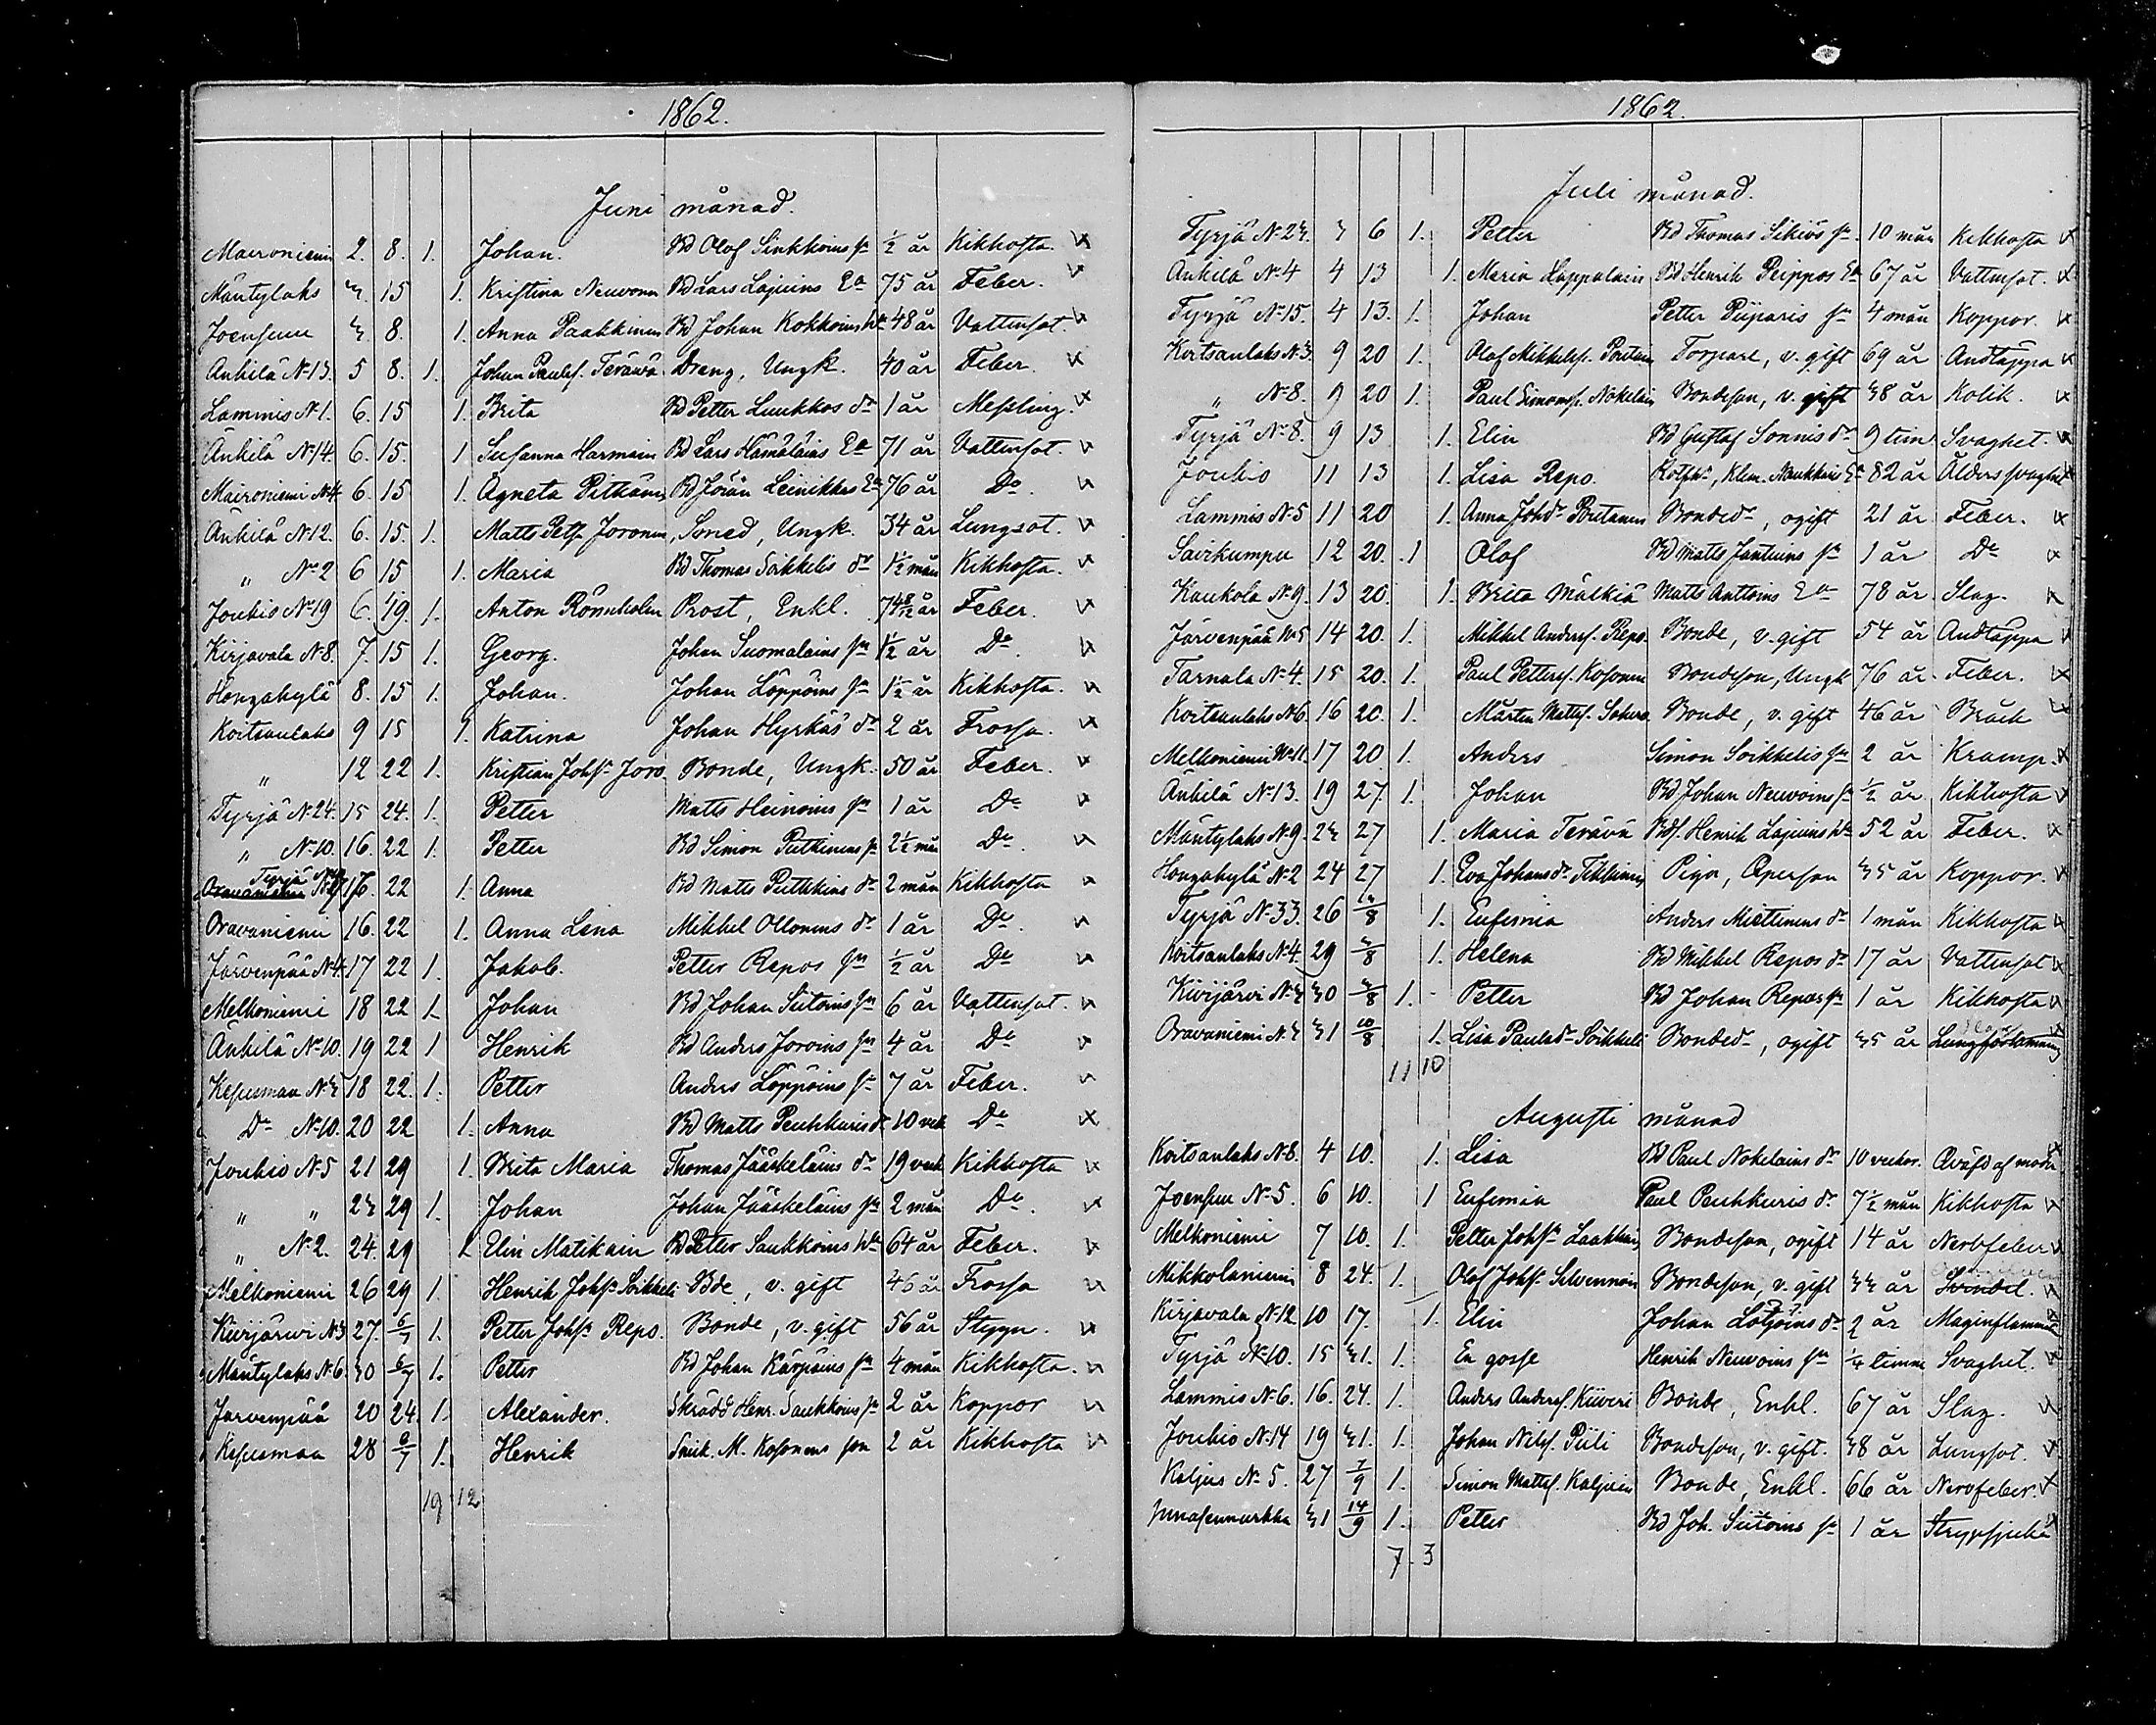 1862.
Juni månad.
Maironiemi 2. 8. 1. Johan. Bd Olof Sinkkoins sn ½ år Kikhosta.
Mäntylaks 3. 15 1. Kristina Neuvonen Bd Lars Lajuins Ea 75 år Feber.
Joensuu 3. 8. 1. Anna Paakkinen Bd Johan Kokkoins h: 48 år Vattusot.
Änkilä No 13. 5 8. 1. Johan Paulss. Teräwä. Dreng, Ungk. 40 år Feber.
Lammis No 1. 6. 15 1. Brita Bd Petter Luukkos dr 1 år Messling.
Änkilä No 14. 6. 15. 1 Susanna Harmain Bd Lars Hämäläins Ea 71 år Vattusot.
Maironiemi No 4. 6. 15 1. Agneta Pitkänen Bd Jöran Leinikkas Ea 76 år Do.
Änkilä No 12. 6. 15. 1. Matts Petss. Joronen, Smed, Ungk. 34 år Lungsot.
" No 2 6 15 1. Maria Bd Thomas Soikkelis dr 1½ mån Kikhosta.
Joukio No 19 6. 19. 1. Anton Rönnholm Prost, Enkl. år Feber.
Kirjavala N 8. 7. 15 1. Georg. Johan Suomalains sn 1½ år Do.
Hongakylä 8. 15 1. Johan. Johan Löppöins sn 1½ år Kikhosta.
Koitsanlaks 9 15 1. Katrina Johan Hyrkäs dr 2 år Frossa.
" 12 22 1. Kristian Johss. Joro. Bonde, Ungk. 50 år Feber.
Tyrjä No 24. 15 24. 1. Petter Matts Heinoins sn 1 år Do
" No 10. 16. 22 1. Petter Bd Simon Putkinens sn 2½ mån Do.
Tyrjä 16. 22 1. Anna Bd Matts Putkkins dr 2 mån Kikhosta
Oravaniemi 16. 22 1. Anna Lena Mikkel Ollonens dr 1 år Do.
Järvenpää N 4. 17 22 1. Jakob. Petter Repos sn ½ år Do
Melkoniemi 18 22 1. Johan Bd Johan Siitoins sn 6 år Vattusot.
Änkilä No 10. 19 22 1 Henrik Bd Anders Joroins sn 4 år Do
Kesusmaa No 3 18 22. 1. Petter Anders Löppöins sn 7 år Feber.
Do No 10. 20 22 1. Anna Bd Matts Peuhkuris dr 10 vek Do
Joukio N 5 21 29 1. Brita Maria Thomas Jääskeläins dr 19 veck Kikhosta
" " 23 29 1. Johan Johan Jääskeläins sn 2 mån Do.
" No 2. 24. 29 1. Elin Matikain Bd Petter Saukkoins h: 64 år Feber.
Melkoniemi 26 29 1. Henrik Johss. Soikkeli Bde, v. gift 46 år Frossa
Kivijärwi N 3 27. 6/7 1. Petter Johss. Repo. Bonde, v. gift 56 år Styng.
Mäntylaks N 6. 30 6/7 1. Petter Bd Johan Kärpäins sn 4 mån Kikhosta.
Järvenpää 20 24 1. Alexander. Skrädd Henr. Saukkoins sn 2 år Koppor
Kesusmaa 28 6/7 1. Henrik M. Kosonens son 2 år Kikhosta
19 12
1862.
Juli månad.
Tyrjä No 23. 3 6 1. Petter Bd Thomas Sikiös sn. 10 mån Kikhosta
Änkilä No 4 4 13 1. Maria Lappalain Bd Henrik Peippos Ea 67 år Vattusot.
Tyrjä No 15. 4 13. 1. Johan Petter Piiparis sn 4 mån Koppor.
Koitsanlaks N. 3. 9 20 1. Olof Mikkelss. Torpare, v. gift 69 år Andtäppa
" No 8. 9 20 1. Paul Simonss. Nokelain Bondeson, v. gift 38 år Kolik.
Tyrjä No 8. 9 13 1. Elin Bd Gustaf Sonnis dr 9 tim Svaghet.
Joukio 11 13 1. Lisa Repo. 82 år Ålderssvaghet
Lammis N 5 11 20 1. Anna Johdr. Puntanen Bonded., ogift 21 år Feber.
Savikumpu 12 20. 1 Olof Bd Matts Jantuens sn 1 år Do
Kaukola No 9. 13 20. 1. Brita Mälkiä Matts Anttoins Ea 78 år Slag.
Järvenpää No 5 14 20. 1. Mikkel Anderss. Repo. Bonde, v. gift 54 år Andtäppa
Tarnala No 4. 15 20. 1. Paul Petterss. Kosonen Bondeson, Ungk 76 år Feber.
Koitsanlaks N 6. 16 20. 1. Mårten Mattss. Bonde, v. gift 46 år Bråck
Melkoniemi No 11. 17 20 1. Anders Simon Soikkelis sn 2 år Kramp.
Änkilä No 13. 19 27. 1. Johan Bd Johan Neuvoins sn ½ år Kikhosta
Mäntylaks N 9. 23 27 1. Maria Terävä Bds. Henrik Lajuins h: 52 år Feber.
Hongakylä N 2 24 27 1. Eva Johansdr. Tikkinen Piga, 35 år Koppor.
Tyrjä No 33. 26 1. Eufemia Anders Miettinens dr 1 mån Kikhosta
Koitsanlaks N 4. 29 3/8 1. Helena Bd Mikkel Repos dr 17 år Vattusot
Kivijärvi N. 3 30 3/8 1. Petter Bd Johan Repos sn 1 år Kikhosta
Oravaniemi N. 3 31 10/8 1. Lisa Paulsdr. Soikkeli Bonded., ogift 35 år Lungförlamning
11 10
Augusti månad
Koitsanlaks N 8. 4 10. 1. Lisa Bd Paul Nokelains dr 10 veckor. Qväfd af modr
Joensuu No 5. 6 10. 1 Eufemia Paul Peuhkuris dr. 7½ mån Kikhosta
Melkoniemi 7 10. 1. Petter Johss. Laakkin Bondeson, ogift 14 år Nervfeber
Mikkolaniemi 8 24. 1. Olof Johss. Silvennoin Bondeson, v. gift 33 år Svindel.
Kirjavala N 12 10 17. 1. Elin Johan dr 2 år Maginflamma
Tyrjä No 10. 15 31. 1. En gosse Henrik Neuvoins sn ¼ timme Svaghet.
Lammis N 6. 16. 24. 1. Anders Anderss. Kiiveri Bonde, Enkl. 67 år Slag.
Joukio N 14 19 31. 1. Johan Nilss. Piili Bondeson, v. gift. 38 år Lungsot.
Kaljus No 5. 27 7/9 1. Simon Mattss. Kaljuin Bonde, Enkl. 66 år Nervfeber.
31 14/9 1. Petter Bd Joh. Siitoins sn 1 år Strypsjuka
7. 3